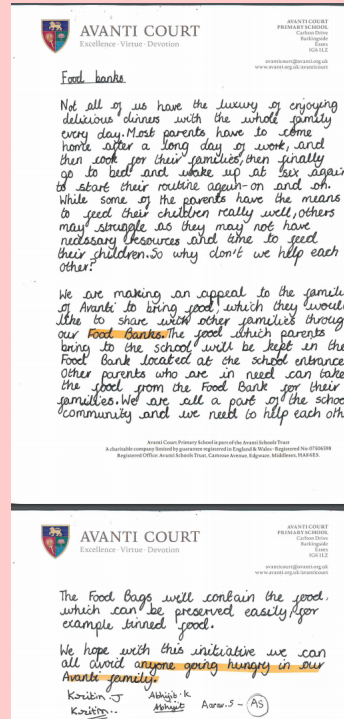 AVANTI COURT
Excellence · Virtue · Devotion
AVANTI COURT
PRIMARY SCHOOL
Carlton Drive
Barkingside
Essex
IG6 1LZ
avanticourt@avanti.org.uk
www.avanti.org.uk/avanticourt
Food banks
Not all of us have the luxury of enjoying
delicious dinners with the whole family
every day. Most parents have to come
home after a long day of work, and
then cook for their families, then finally
go to bed and wake up at six again
to start their routine again-on and on.
While some of the parents have the means
to feed their children really well, others
may struggle as they may not have
necissary resources and time to feed
their children. So why don't we help each
other?
We are making an appeal to the famili
of Avanti to bring food, which they would
like to share with other families throug
our Food Banks. The food which parents
bring to the school will be kept in the
Food Bank located at the school entrance
Other parents who are in need can take
the food from the Food Bank for their
families. We are all a part of the schoo
community and we need to help each oth
Avanti Court Primary School is part of the Avanti Schools Trust
A charitable company limited by guarantee registered in England & Wales · Registered No: 07506598
Registered Office: Avanti Schools Trust, Camrose Avenue, Edgware, Middlesex, HA8 6ES.
AVANTI COURT
Excellence · Virtue · Devotion
AVANTI COURT
PRIMARY SCHOOL
Carlton Drive
Barkingside
Essex
IG6 1LZ
avanticourt@avanti.org.uk
www.avanti.org.uk/avanticourt
The Food Bags will contain the food,
which can be preserved easily, for
example tinned food.
We hope with this initiative we can
all avoid anyone going hungry in our
Avanti family.
Kritin. J Abhijit. K Aarav. S - AS
Kritin.. Abhijit